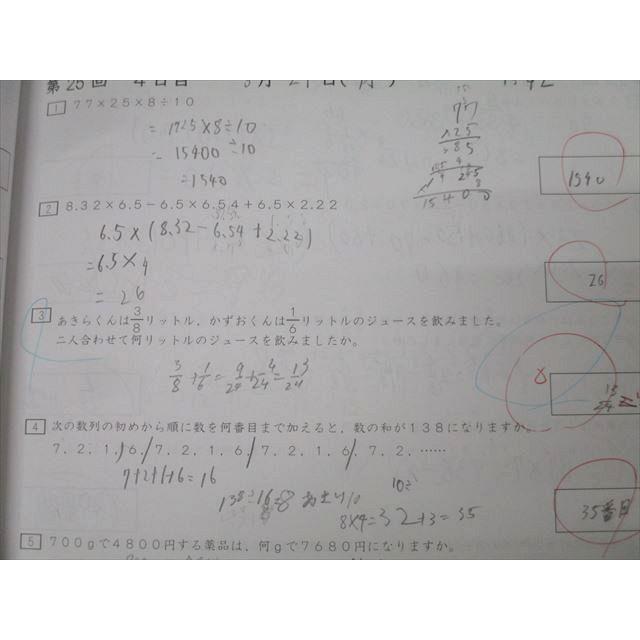 第25回 4日目
1 77×25×8÷10
=1925×8÷10
=15400÷10
=1540
77
×25
385
15400
1540
2 8.32×6.5-6.5×6.54+6.5×2.22
6.5×(8.32-6.54+2.22)
=6.5×4
=26
26
3 あきらくんは3/8リットル,かずおくんは1/6リットルのジュースを飲みました。
二人合わせて何リットルのジュースを飲みましたか。
3/8+1/6=9/24+4/24=13/24
13/24
4 次の数列の初めから順に数を何番目まで加えると,数の和が138になりますか。
7.2.1.6.7.2.1.6.7.2.1.6.7.2.……
7+2+1+6=16
138÷16=8 あまり10
8×4=32+3=35
35番目
5 700gで4800円する薬品は,何gで7680円になりますか。